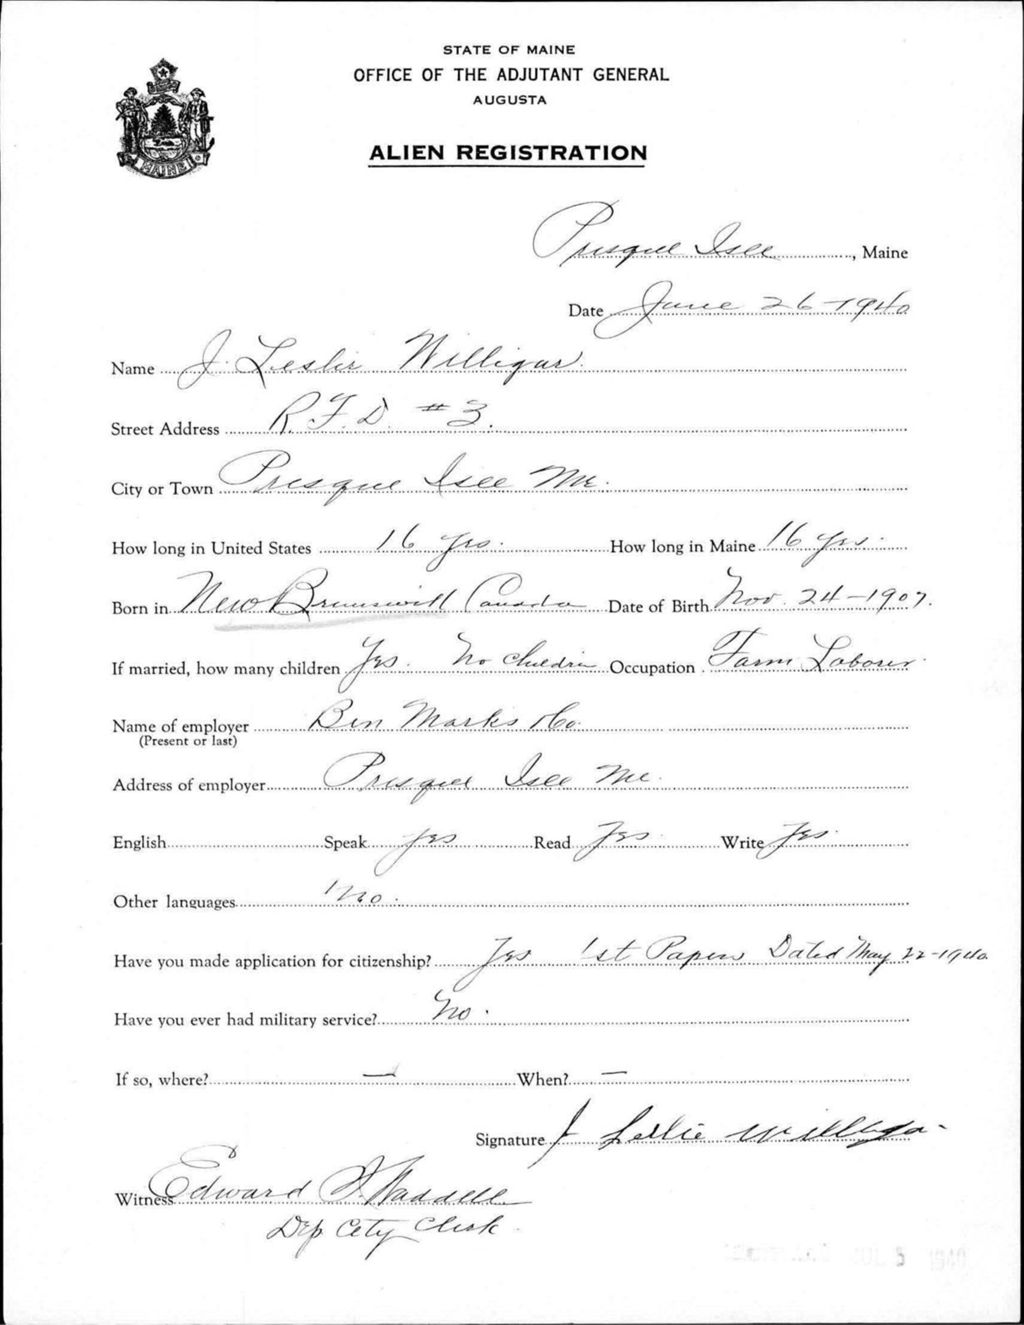 STATE OF MAINE
OFFICE OF THE ADJUTANT GENERAL
AUGUSTA
MAINE
ALIEN REGISTRATION
Presque Isle, Maine
Date June 26-1940
Name J. Leslie Willigar.
Street Address R.F.D. #3.
City or Town Presque Isle Me.
How long in United States 16 yrs. How long in Maine 16 yrs.
Born in New Brunswick Canada Date of Birth Nov. 24-1907.
If married, how many children Yes. No Children Occupation Farm Laborer.
Name of employer Ben Marks Co.
(Present or last)
Address of employer Presque Isle Me.
English Speak yes Read Yes. Write Yes.
Other languages No.
Have you made application for citizenship? Yes 1st Papers Dated May 22-1940
Have you ever had military service? No.
If so, where? — When? —
Signature J Leslie Willigar
Witness Edward Waddell
Dep City Clerk.
5 1940